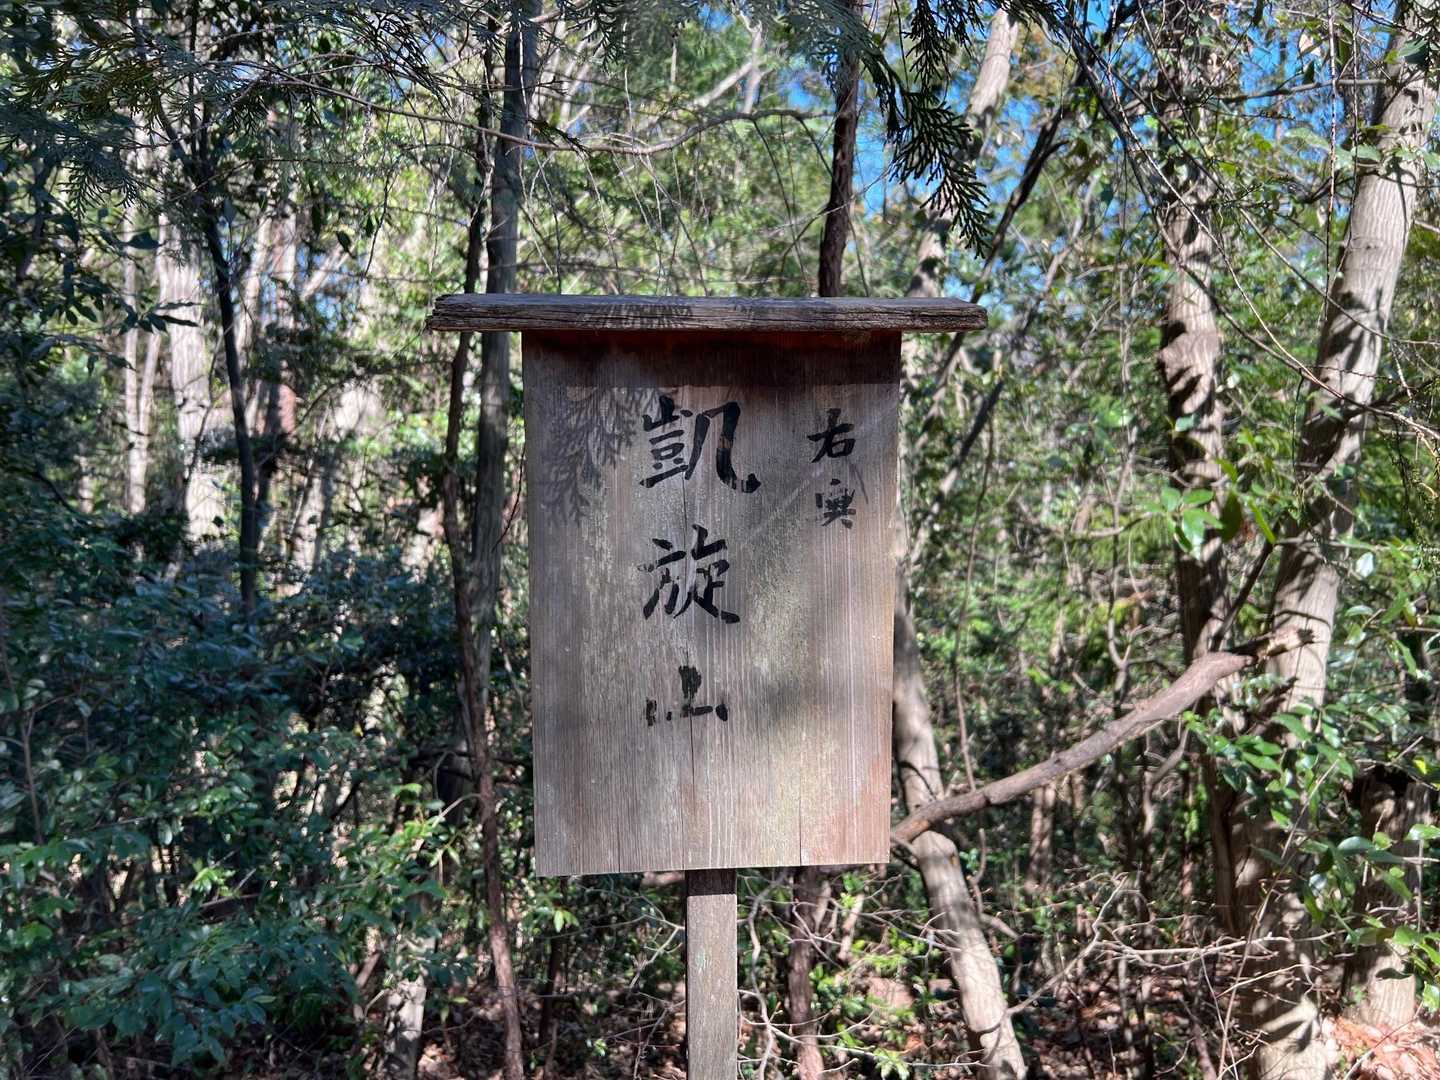 右奥
凱旋山